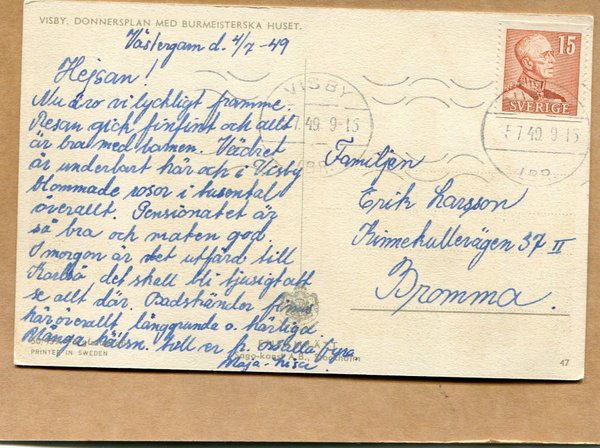 VISBY. DONNERSPLAN MED BURMEISTERSKA HUSET.
Västergarn d. 4/7 -49
Hejsan!
Nu äro vi lyckligt framme.
Resan gick finfint och allt
är bra med barnen. Vädret
är underbart här och i Visby
blommade rosor i tusental
överallt. Pensionatet är
så bra och maten god.
I morgon är det utfärd till
Karlsö det skall bli tjusigt att
se allt där. Badstränder finns
här överallt långgrunda o. härliga
Många hälsn. till er fr. oss alla fyra
Maja-Lisa
PRINTED IN SWEDEN
15
SVERIGE
VISBY
5.7.49. 9-15
VISBY
5.7.49. 9-15
Familjen
Erik Larsson
Kinnekullevägen 37 II
Bromma.
Stockholm
47